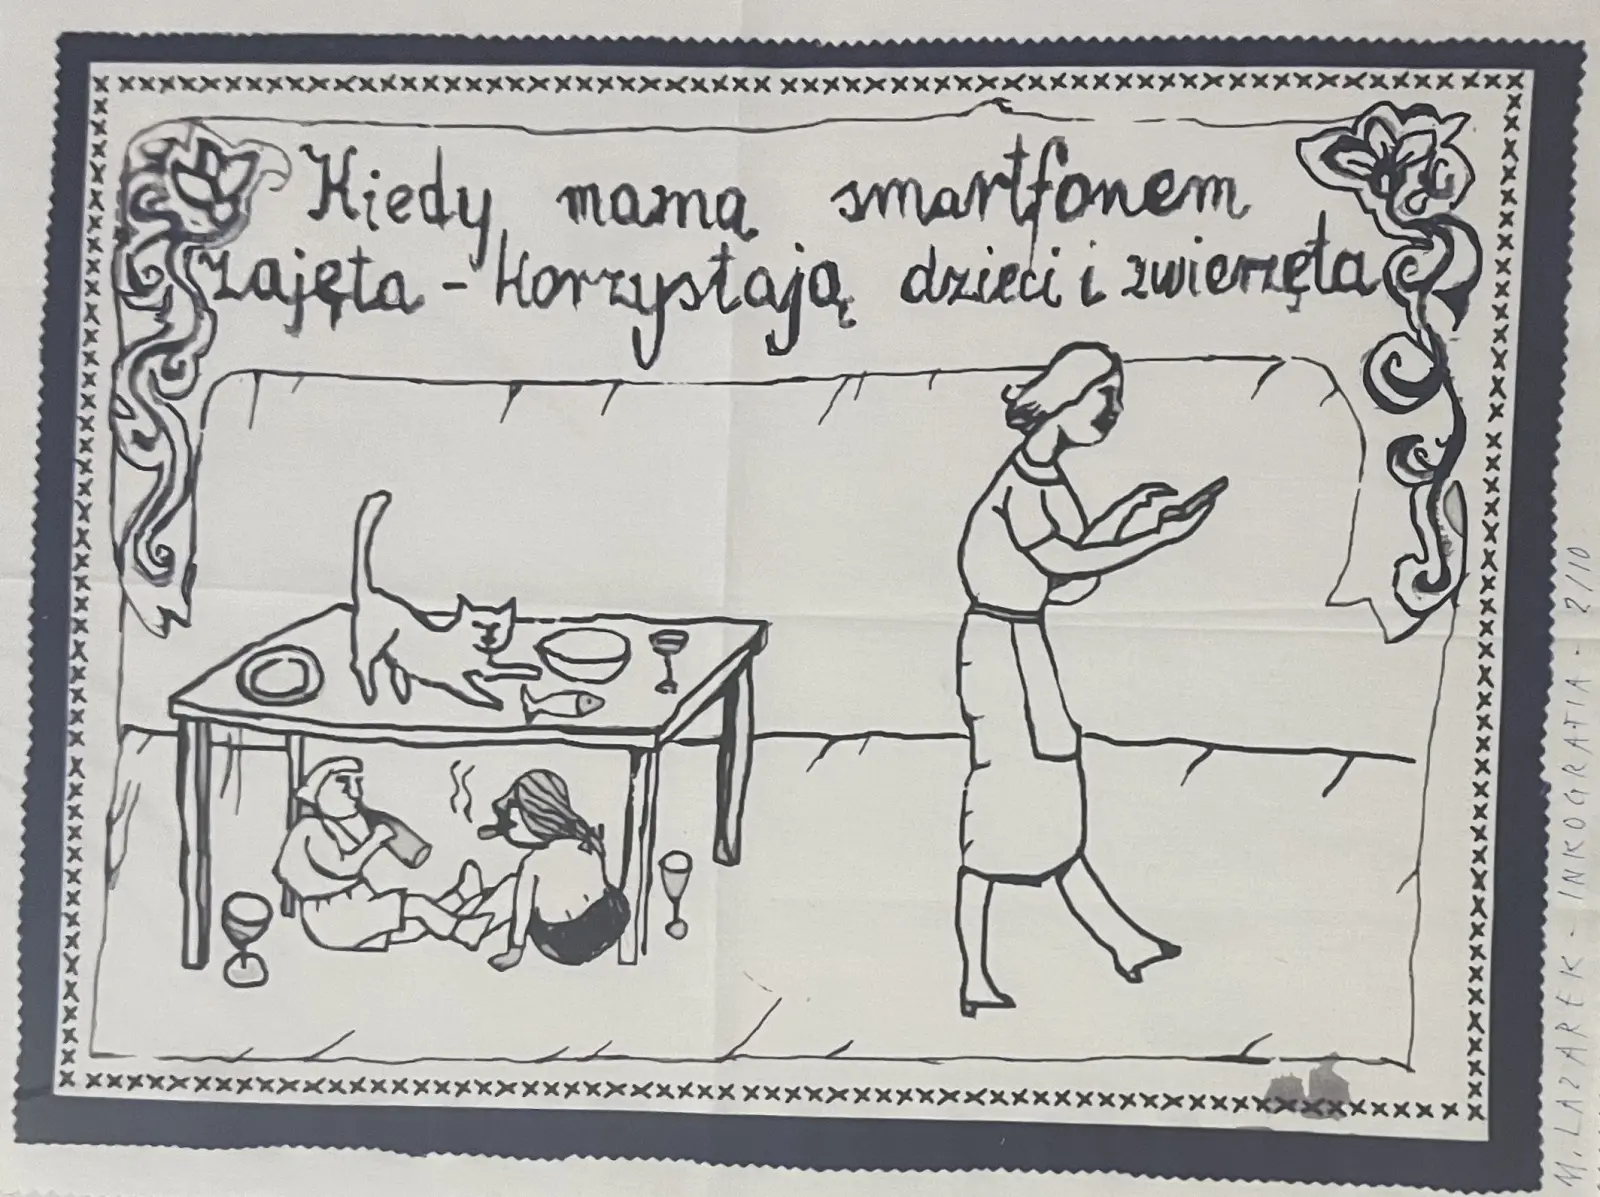 Kiedy mama smartfonem
zajęta - korzystają dzieci i zwierzęta
M. LAZAREK - INKOGRAFIA - 2/10